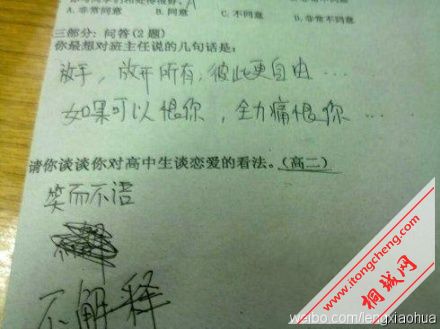 A. 非常同意 B. 同意 C. 不同意 D. 非常不同意
三部分: 问答(2题)
你最想对班主任说的几句话是:
放手，放开所有，彼此更自由…
如果可以恨你，全力痛恨你…
请你谈谈你对高中生谈恋爱的看法。(高二)
笑而不语
不解释
www.itongcheng.com
桐城网
weibo.com/lengxiaohua